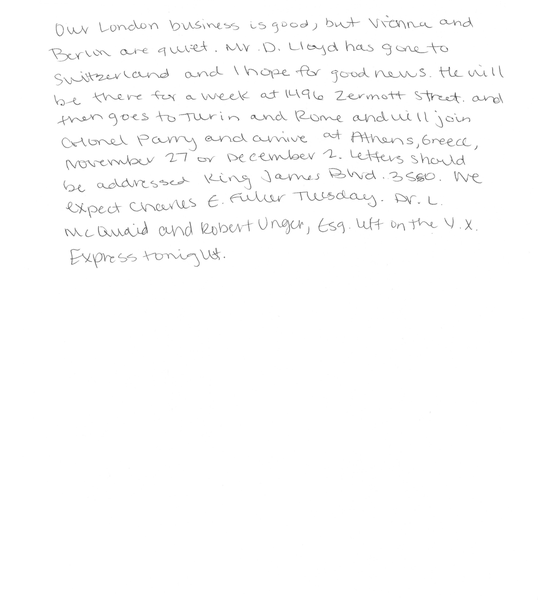 Our London business is good, but Vienna and
Berlin are quiet. Mr. D. Lloyd has gone to
Switzerland and I hope for good news. He will
be there for a week at 1496 Zermott Street. and
then goes to Turin and Rome and will join
Colonel Parry and arrive at Athens, Greece,
November 27 or December 2. Letters should
be addressed King James Blvd. 3580. We
expect Charles E. Fuller Tuesday. Dr. L.
McQuaid and Robert Unger, Esq. left on the V.X.
Express tonight.